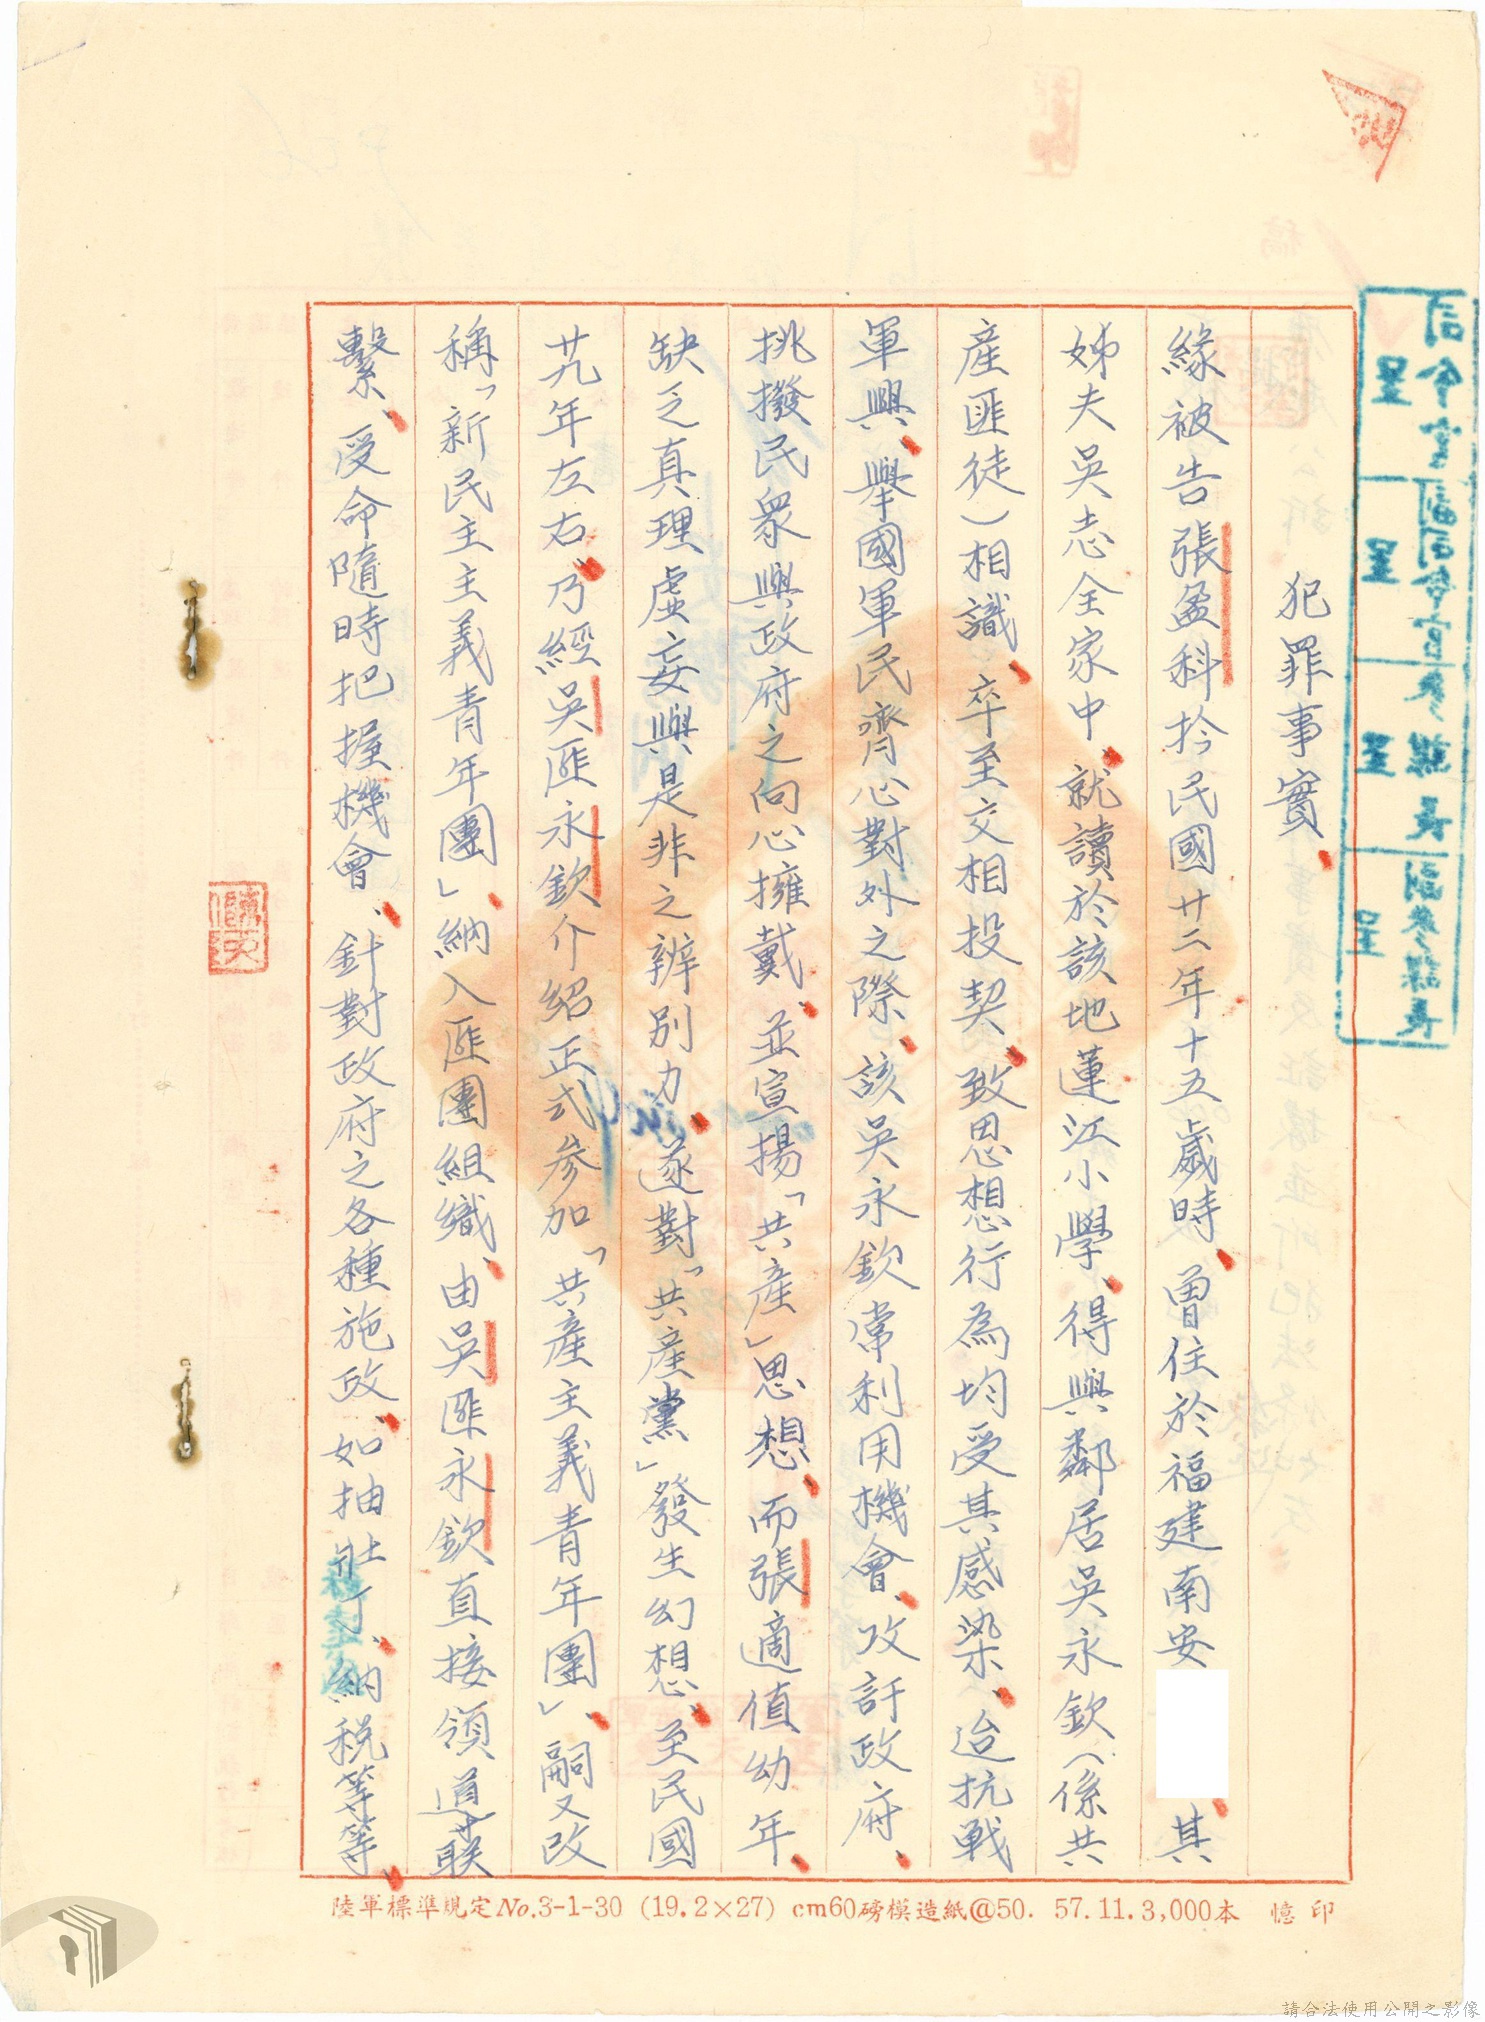 犯罪事實、
緣被告張盈科於民國廿二年十五歲時、曾住於福建南安　、其
姊夫吳志全家中、就讀於該地蓮江小學、得與鄰居吳永欽(係共
產匪徒)相識、卒至交相投契、致思想行為均受其感染、迨抗戰
軍興、舉國軍民齊心對外之際、該吳永欽常利用機會、攻訐政府、
挑撥民眾與政府之向心擁戴、並宣揚「共產」思想、而張適值幼年、
缺乏真理虛妄與是非之辨別力、遂對「共產黨」發生幻想、至民國
廿九年左右、乃經吳匪永欽介紹正式參加「共產主義青年團」、嗣又改
稱「新民主主義青年團」納入匪團組織、由吳匪永欽直接領導联
繫、受命隨時把握機會、針對政府之各種施政、如抽壯丁、納稅等等、
司令官 呈
副司令官 呈
參謀長 呈
副參謀長 呈
陸軍標準規定No.3-1-30 (19.2×27) cm60磅模造紙@50. 57.11.3,000本 憶印
請合法使用公開之影像